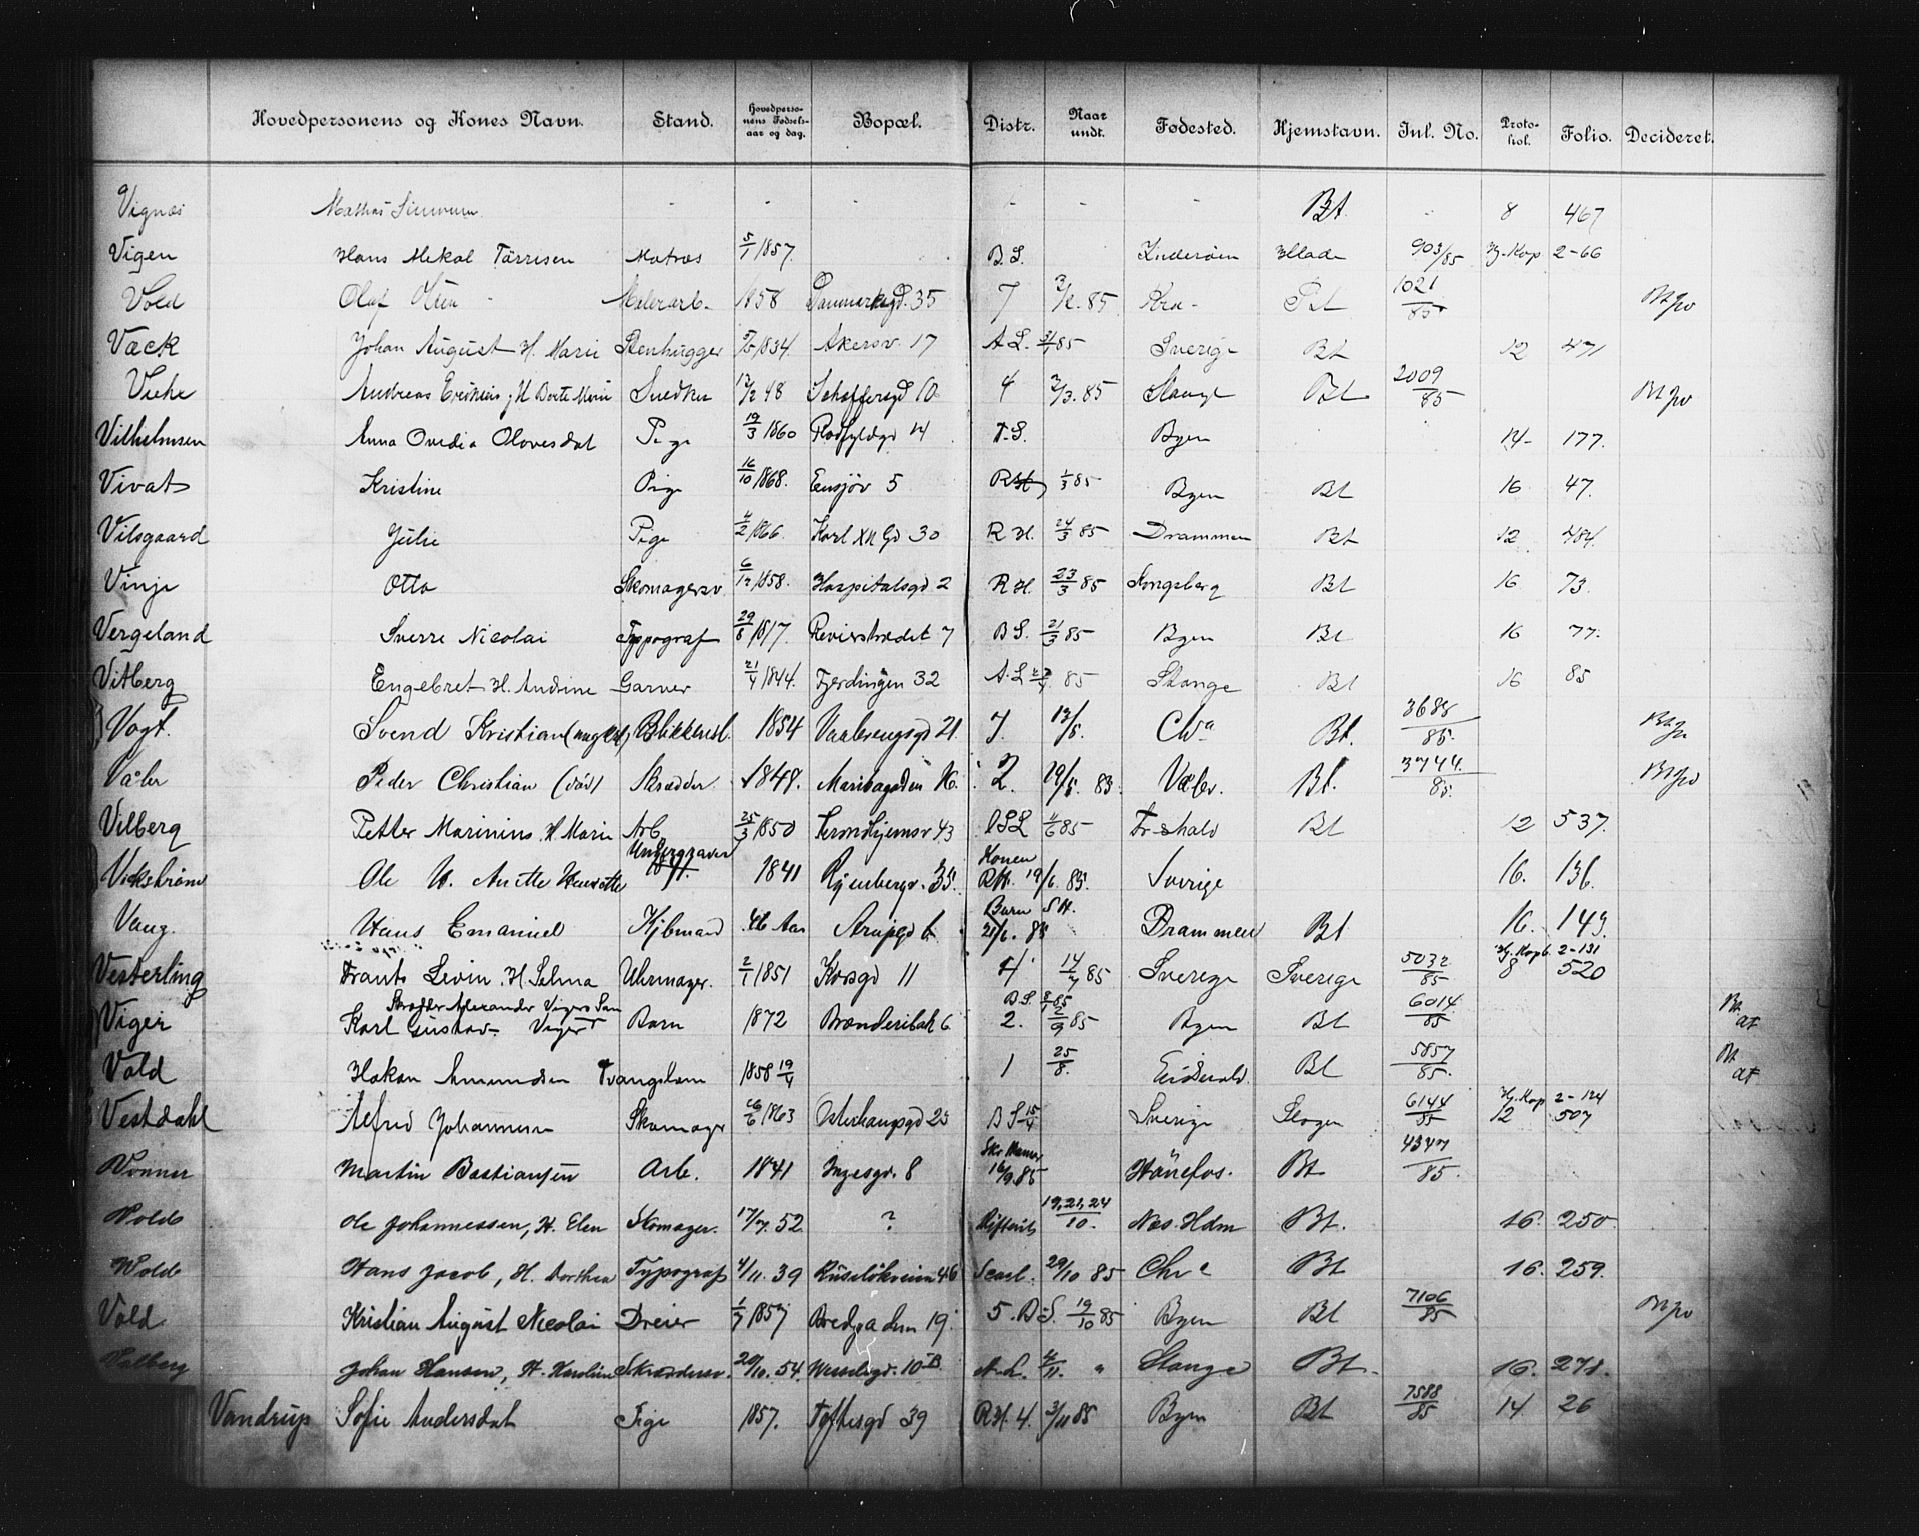 Hovedpersonens og Kones Navn. Stand. Hovedperso-nens Fødsels-aar og dag. Bopæl. Distr. Naar undt. Fødested. Hjemstavn. Inl. No. Proto-kol. Folio. Decideret.
Vignæs Mathias Bt. 8 467
Vigen Hans Mekal Tärresen Matros 5/1 1857. B.S. Inderøen Hlade 903/85 Hj. Kop 2-66
Vold Olaf Olsen Malerarb. 1858 Danmarksgd. 35 7 2/2. 85 Kra- Bt 1021/85 Bt pv
Væck Johan August H. Marie Stenhugger 5/5 1834. Akersv. 17 A.S. 31/1 85 Sverige Bt 12 471
Andreas H Berte Marie Snedker 12/2 48 Schoffersgd 10 4 2/3. 85 Stange Bt 2009/85 Bt pv
Vilhelmsen Anna Ovedia Olavesdat Pige 19/3 1860 14 T.S. Byen 14- 177.
Vivat Kristine Pige 16/10 1868. Ensjøv 5 RH 1/3 85 Byen Bt 16 47.
Vilsgaard Julie Pige 4/2 1866. Karl XII Gd 30 R.H. 24/3 85 Drammen Bt 12 484.
Vinje Otto Skomagersv. 6/12 1858. Hospitalsgd 2 R.H. 23/3 85 Kongsberg Bt 16 73.
Vergeland Sverre Nicolai Typograf 29/8 1817. Revierstrædet 7 B.S. 21/3 85 Byen Bt 16 77.
Vitberg Engebret H. Andrine Garver 21/4 1844. Fjerdingen 32 A.S. 85 Stange Bt 16 85
Vogt. Svend Kristian (ung Kst) Blikkensl. 1854 Vaalerengsgd 21. 7. 13/5. Chra Bt. 3688/85. Bt pv
Våler Peder Christian (død) Skrædder. 1847. Maribogaden 16. 2. 19/5. 83. Våler. Bt. 3744/85. Bt pv
Vilberg Petter Marinius. H. Marie Arb. 25/3 1850 Trondhjemsv 43 OSL 4/6 85 Fr-hald Bt 12 537.
Undergraver
Vickstrøm Ole H. Anette Henrette 1841 Ryenbergv. 35. Konen RH. 19/6. 85. Sverige 16. 136.
Vang. Hans Emanuel Kjbmand 46 Aar Arupgd 6 Barn S.H. 21/6. 85 Drammen Bt 16. 149.
Vesterling Frants Levin. H. Selma Uhrmager. 2/1 1851 Korsgd 11 4 14/7 85 Sverige Sverige 5032/85 Hj. Kop 6. 2-131 8 520
Skrædder Alexander Vigers Søn
Viger Karl Gustav Viger Barn 1872 Brænderibak 6 B.S. 2. 2/9 85 Byen Bt 6014/85 Bt at
Vold Hakon Amundsen Tvangslem 1858 19/4 1 25/8. Eidsvold. Bt 5857/85. Bt at
Vestdahl Alfred Johannesen Skomager 26/6 1863 Østerhausgd 25 B.S 15/4 Sverige Skogen 6144/85 Hj. Kop 2-124 12 507
Wonner Martin Bastiansen Arb. 1841 Ingesgd. 8 16/9. 85 Hönefos. Bt 4347/85
Wold Ole Johannessen, H. Elen Skomager. 17/7. 52 ? 19,21,24/10. Næs. Hdm Bt. 16. 250.
Wold Hans Jacob, H. Dorthea Typograf 4/11. 39 Ruseløkveien 46 Scarl. 29/10 85 Chra Bt 16. 259.
Vold Kristian August Nicolai Dreier 1/7 1857 Bredgaden 19. 5. B.S. 19/10 85 Byen Bt 7106/85 Bt pv
Walberg Johan Hansen, H. Karoline Skræddersv. 20/10. 54. Wesselsgd. 10 B A.S. 4/11. " Stange Bt. 16. 278.
Vandrup Sofie Andersdat Pige 1857. Toftesgd 39 R.H. 4. 3/11 85 Byen Bt 7588/85 14 26